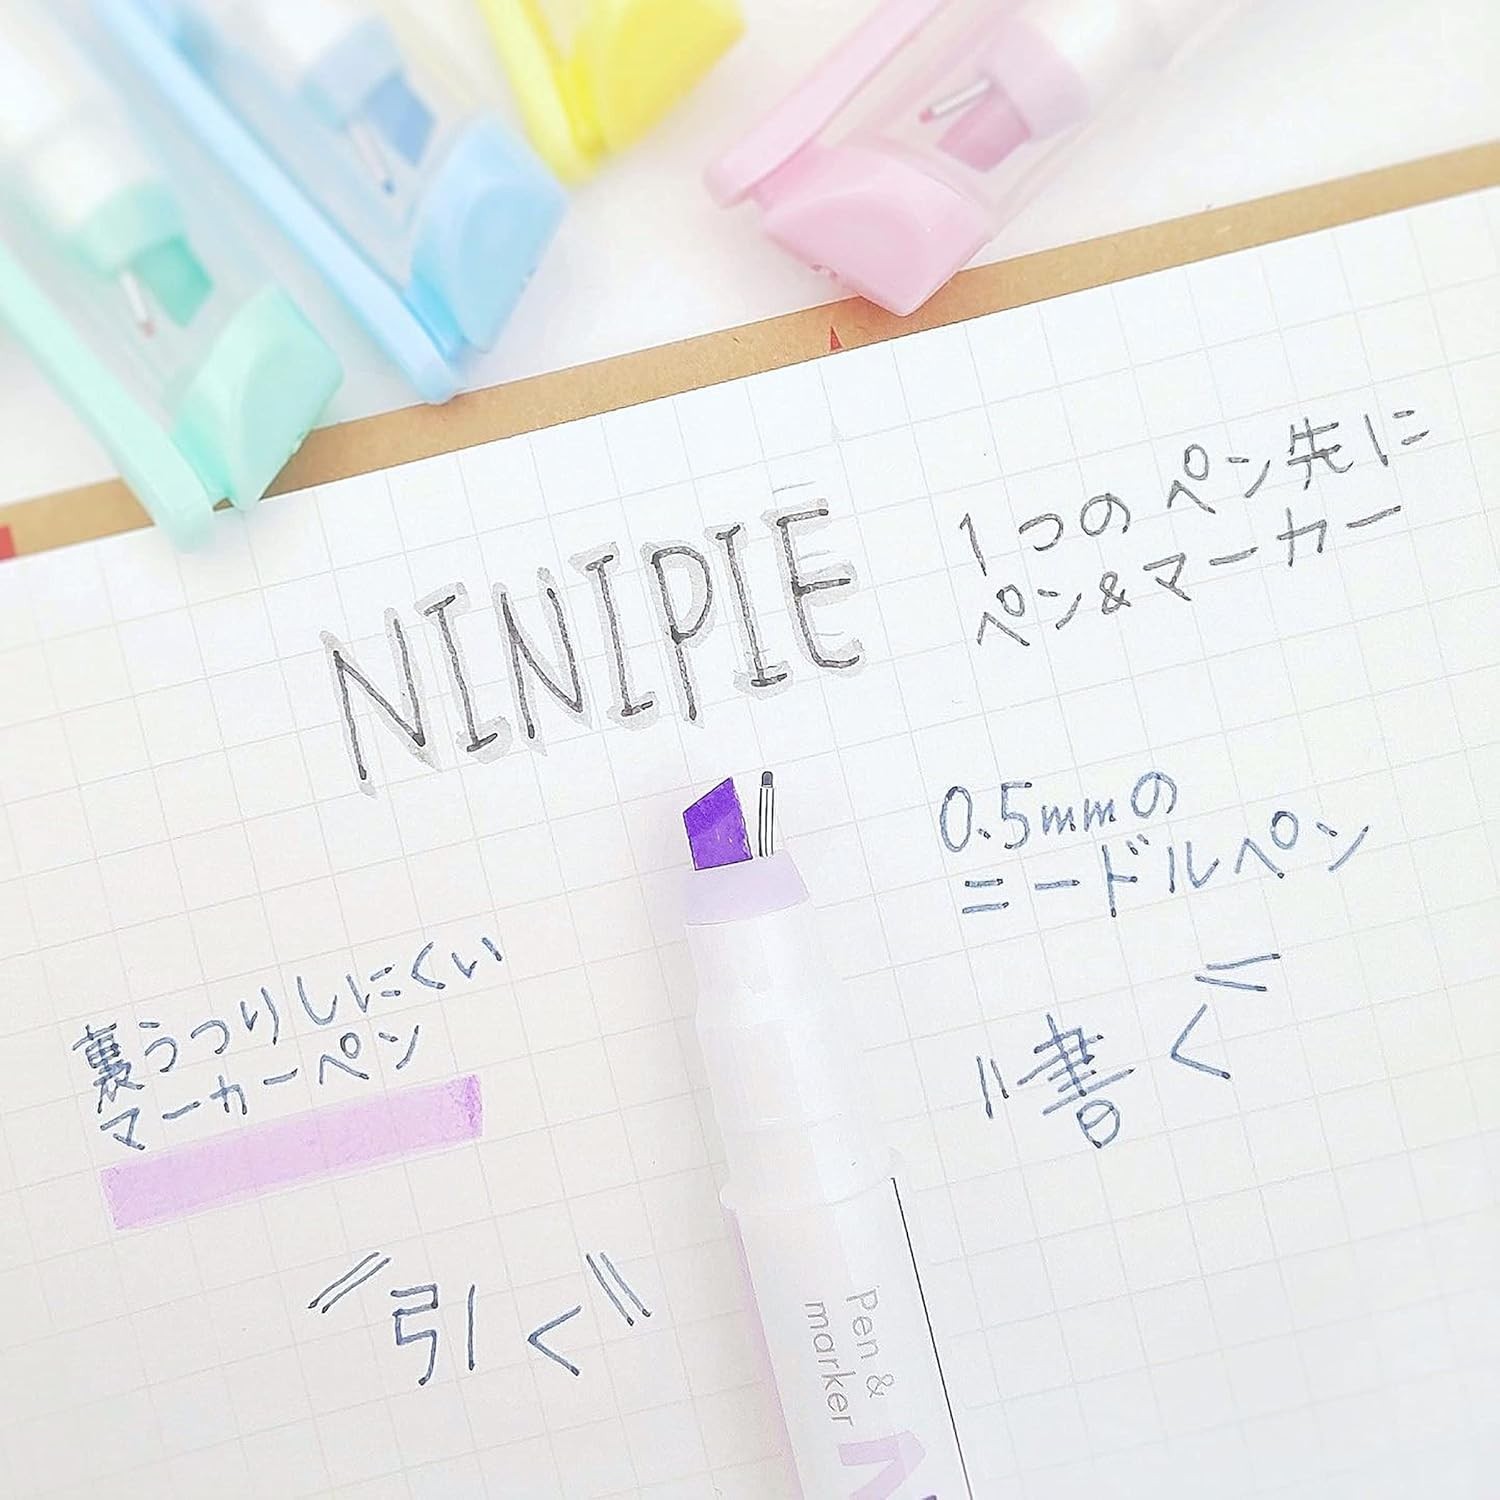 NINIPIE
1つのペン先に
ペン&マーカー
0.5mmの
ニードルペン
"書く"
裏うつりしにくい
マーカーペン
"引く"
Pen &
marker